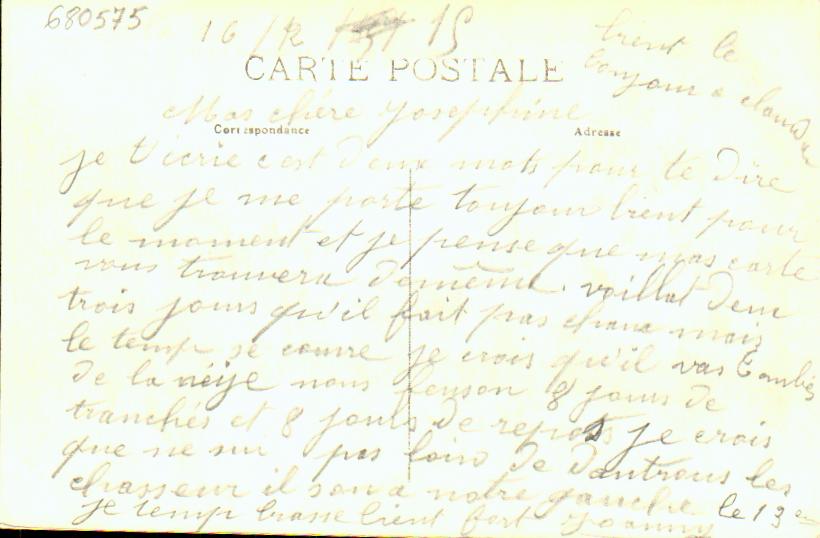 680575
16/12 15
bient le
toujour a chaud
CARTE POSTALE
Mas chére Josephine
Correspondance
Adresse
je t'ecrie c est deux mots pour te dire
que je me porte toujour bient pour
le moment et je pense que mas carte
vous trouvera demême. voillat deux
trois jours qu'il fait pas chaux mais
le temp se couvre je crois qu'il vas tombés
de la néije nous fenson 8 jours de
tranchés et 8 jours de repos je crois
que ne sui pas loin de Dautrous les
chasseur il son a notre gauche le 13e
je temp brasse bient fort Joanny